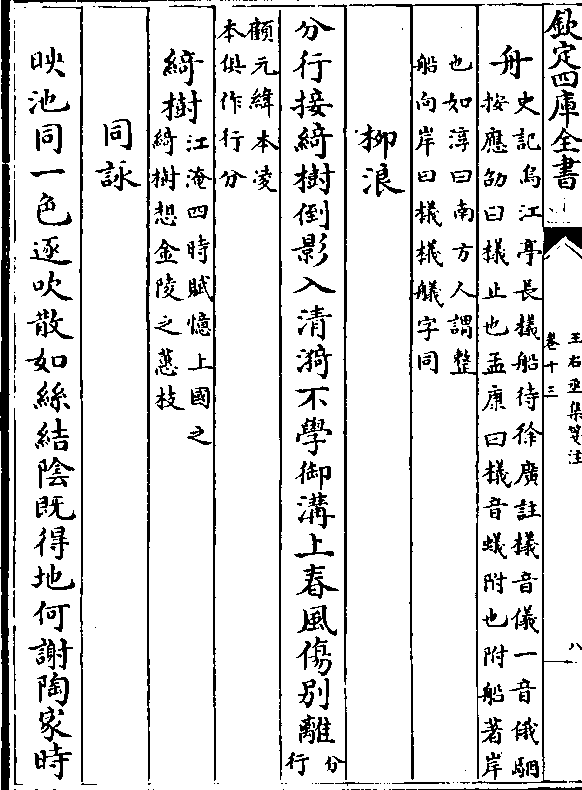 欽定四庫全書
王右丞集箋注
卷十三
八
舟
史記烏江亭長檥船待徐廣註檥音儀一音俄駰
按應劭曰檥止也孟康曰檥音蟻附也附船著岸
也如淳曰南方人謂整
船向岸曰檥檥艤字同
柳浪
分行接綺樹倒影入清漪不學御溝上春風傷別離
分
行
顧元緯本凌
本俱作行分
綺樹
江淹四時賦憶上國之
綺樹想金陵之蕙枝
同詠
映池同一色逐吹散如絲結陰既得地何謝陶家時